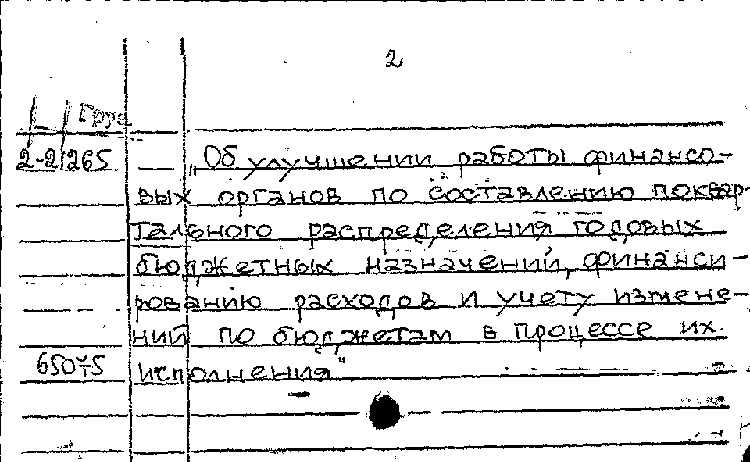 2
2-2/265 „Об улучшении работы финансо-
вых органов по составлению поквар-
тального распределения годовых
бюджетных назначений, финанси-
рованию расходов и учету измене-
ний по бюджетам в процессе их
исполнения"